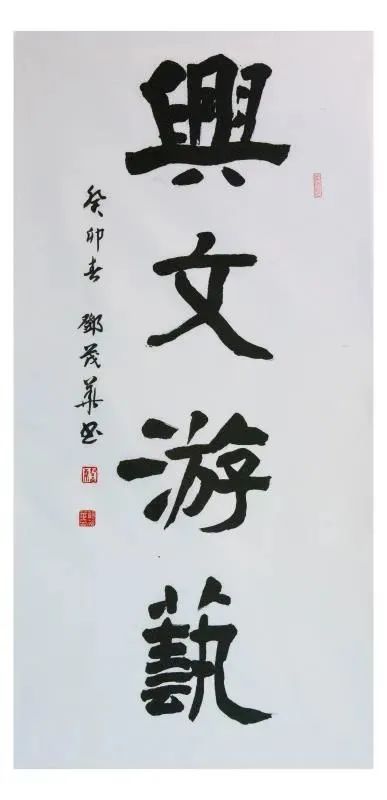 興文游藝
癸卯春 鄧茂華书